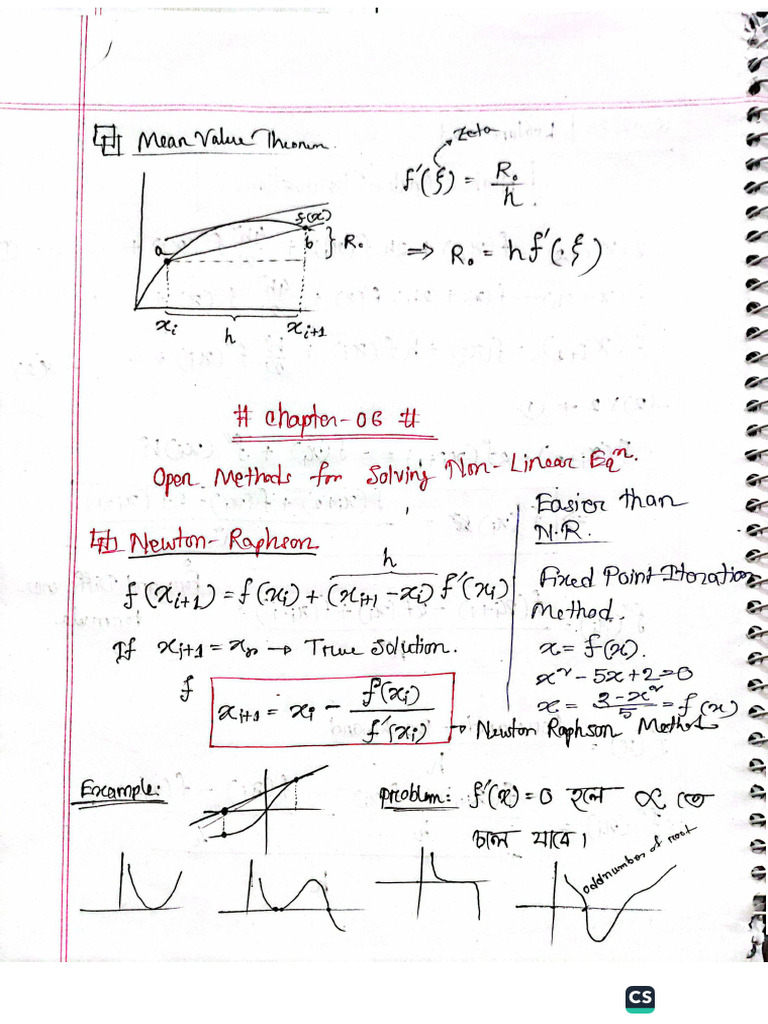 Mean Value Theorem.
Zeta
f'(ξ) = R₀/h
f(x)
a
b } R₀
⇒ R₀ = hf'(ξ)
xᵢ h xᵢ₊₁
# Chapter-06 #
Open Methods for Solving Non-Linear Eqⁿ.
Newton-Raphson
h
f(xᵢ₊₁) = f(xᵢ) + (xᵢ₊₁ - xᵢ) f'(xᵢ)
If xᵢ₊₁ = xₙ → True Solution.
f
xᵢ₊₁ = xᵢ - f(xᵢ)/f'(xᵢ) → Newton Raphson Method
Easier than
N.R.
Fixed Point Iteration
Method.
x = f(x).
x² - 5x + 2 = 0
x = (2-x²)/5 = f(x)
Example:
Problem: f'(x) = 0 হলে ∝ তে
চলে যাবে।
odd number of root
CS